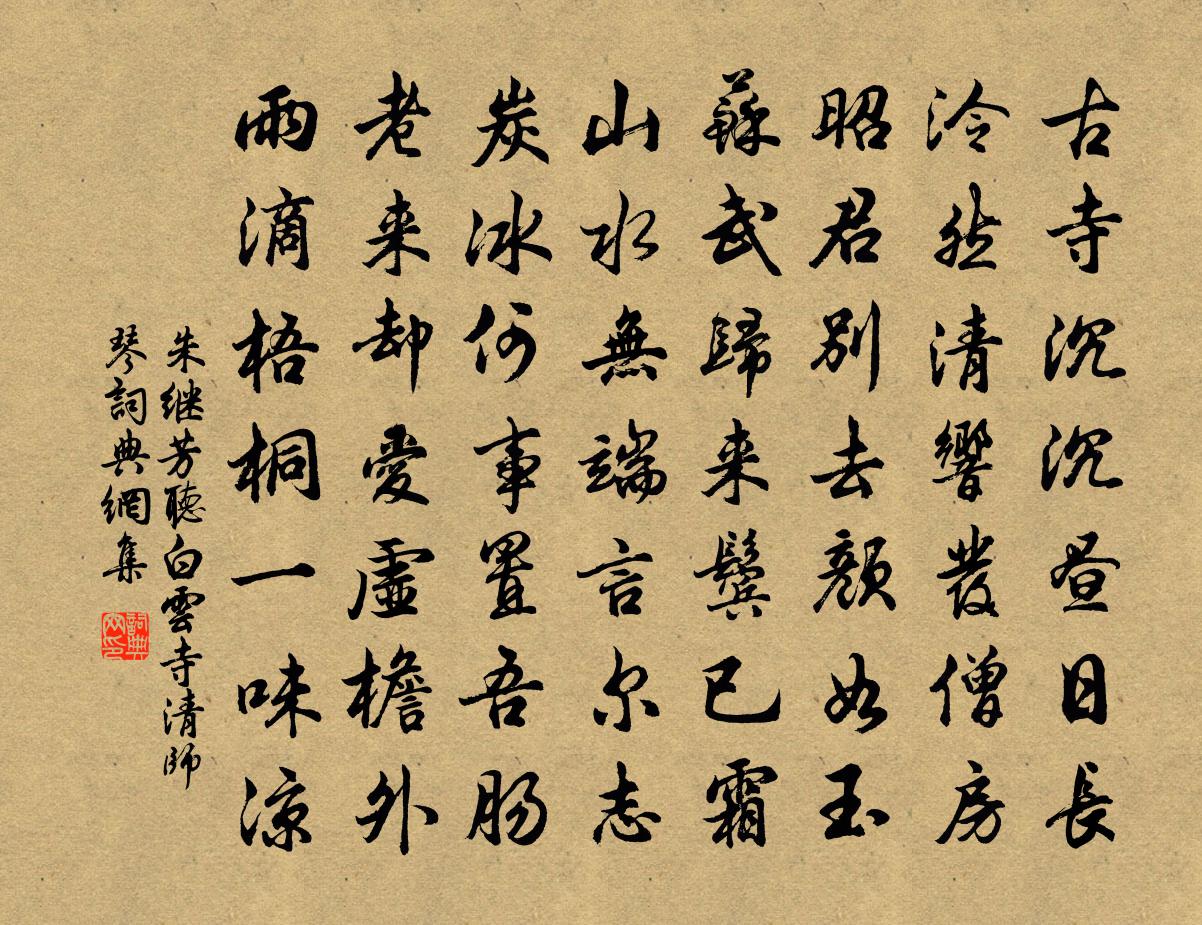 古寺沉沉昼日長
泠然清響發僧房
昭君別去顏如玉
蘇武歸来鬓已霜
山水無端言尔志
炭冰何事置吾肠
老来却愛虛檐外
雨滴梧桐一味凉
朱继芳聽白雲寺清師
琴詞典網集
詞典
网印